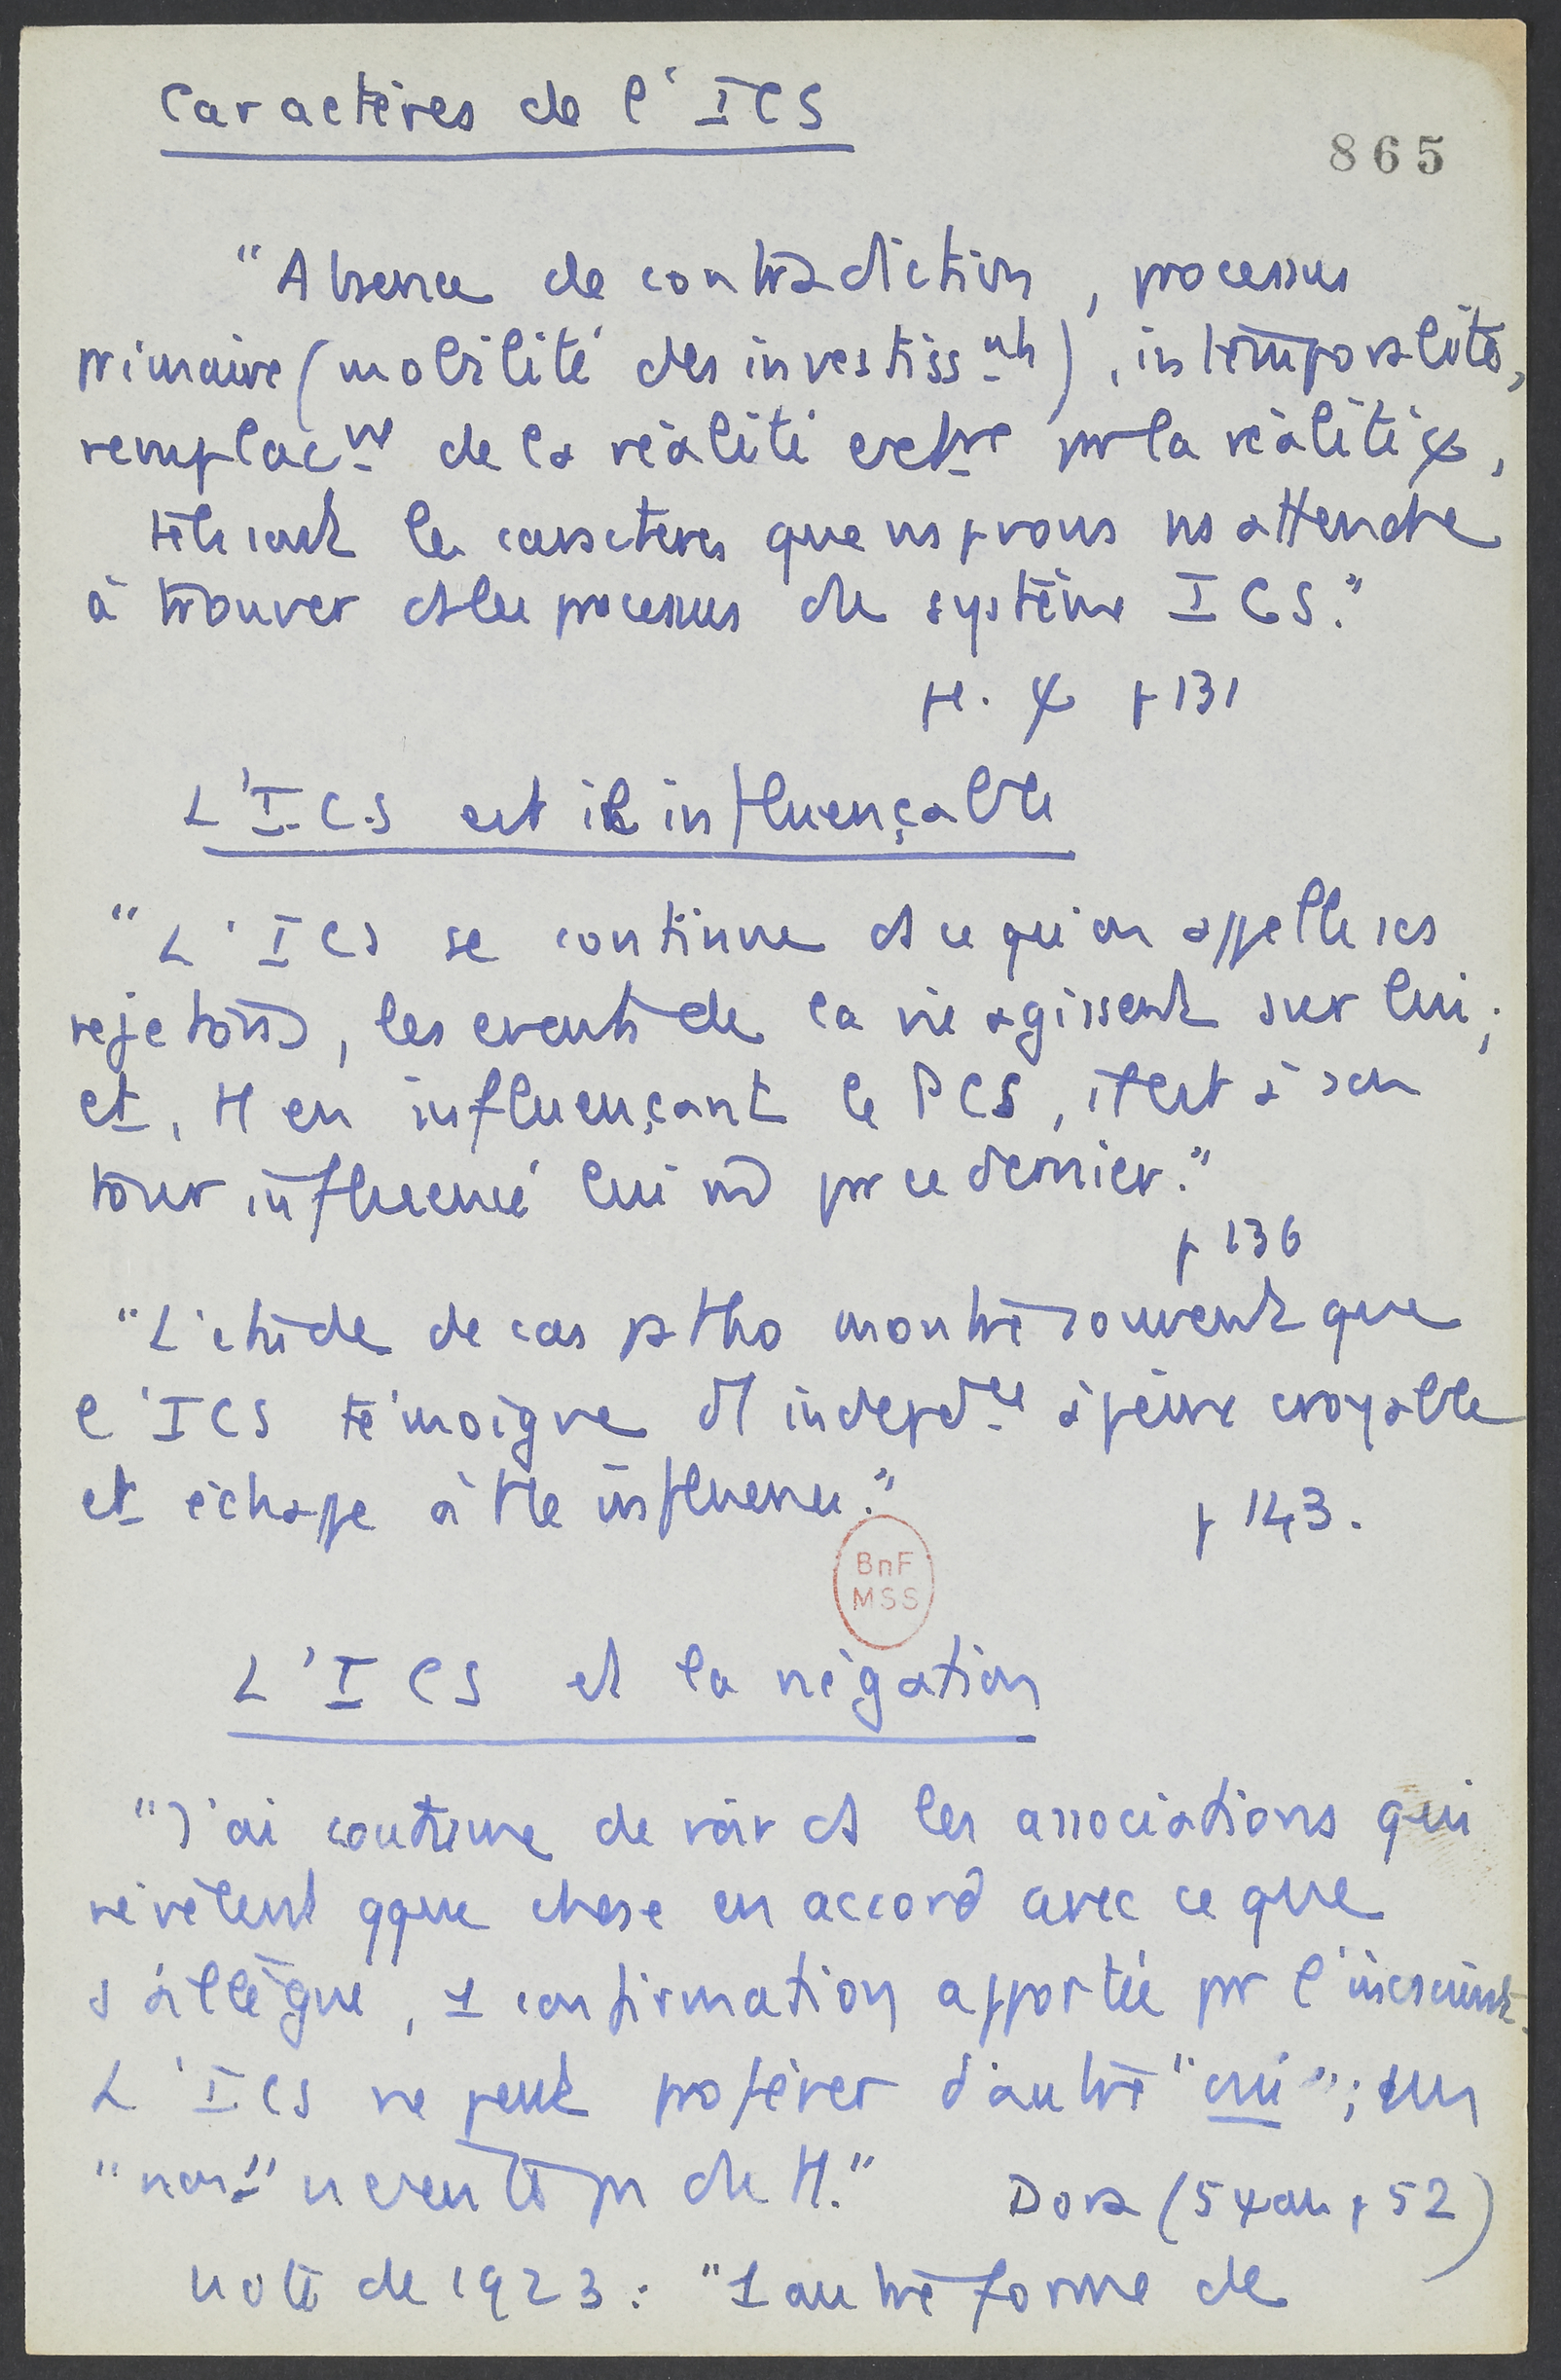 Caractères de l'ICS
865
"Absence de contradiction, processus
primaire (mobilité des investissnts), intemporalité,
remplacnt de la réalité extre pr la réalité ψ,
tels sont les caractères que ns pvons ns attendre
à trouver ds les processus du système ICS."
ψ p 131
L'I.C.S est il influençable
"L'ICS se continue ds ce qu'on appelle ses
rejetons, les events de la vie agissent sur lui;
et, tt en influençant le PCS, il est à son
tour influencé lui mê pr ce dernier."
p 136
"L'étude de cas patho montre souvent que
l'ICS témoigne d'1 indepdce à peine croyable
et échappe à tte influence."
p 143.
BnF
MSS
L'ICS et la négation
"J'ai coutume de voir ds les associations qui
révèlent qque chose en accord avec ce que
j'allègue, 1 confirmation apportée pr l'inconscient.
L'ICS ne peut proférer d'autre "oui"; un
"non" n'existe pas du tt."
Dora (5 ψan p 52)
note de 1923: "1 autre forme de